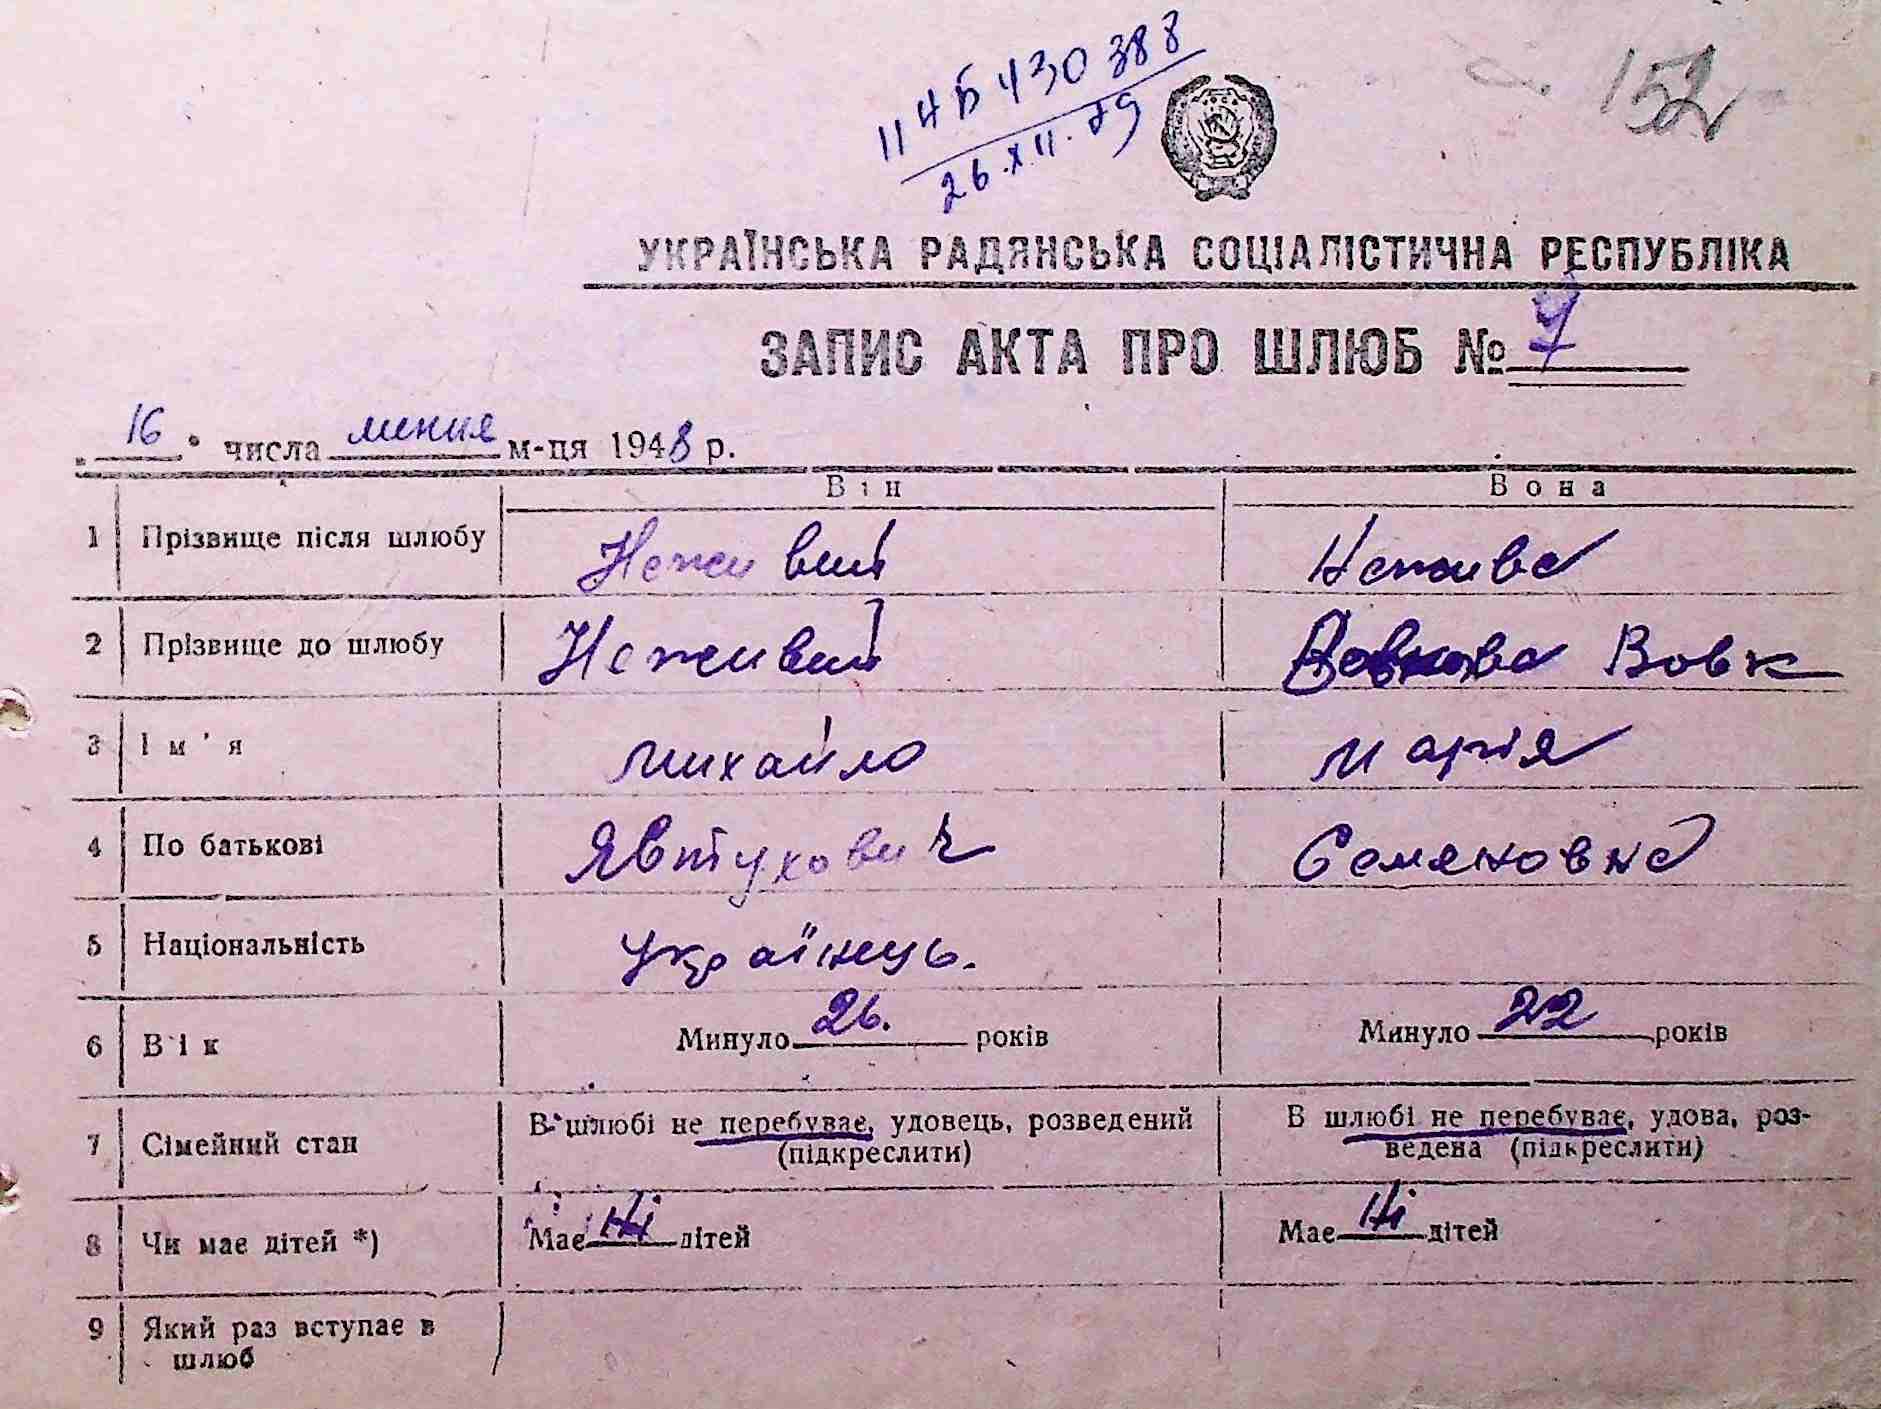 II ЧБ 430388
26.XII.79
152
УКРАЇНСЬКА РАДЯНСЬКА СОЦІАЛІСТИЧНА РЕСПУБЛІКА
ЗАПИС АКТА ПРО ШЛЮБ № 7
16 числа липня м-ця 1948 р.
Він Вона
1 Прізвище після шлюбу Неживий Нежива
2 Прізвище до шлюбу Неживий Вовк
3 Ім'я Михайло Марія
4 По батькові Явтухович Семеновна
5 Національність Українець.
6 Вік Минуло 26. років Минуло 22 років
7 Сімейний стан В шлюбі не перебуває, удовець, розведений (підкреслити) В шлюбі не перебуває, удова, роз-
ведена (підкреслити)
8 Чи має дітей *) Має Ні дітей Має Ні дітей
9 Який раз вступає в
шлюб